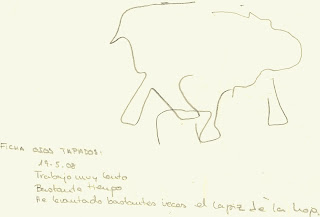 FICHA OJOS TAPADOS:
19-5-08
Trabajo muy lento
Bastante tiempo
He levantado bastantes veces el lapiz de la hoja